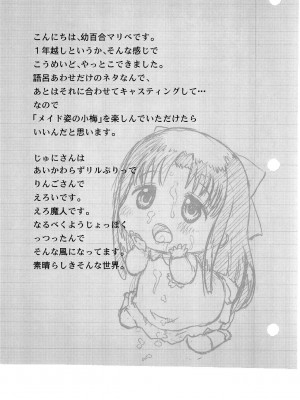 こんにちは、幼百合マリベです。
1年越しというか、そんな感じで
こうめいど、やっとこできました。
語呂あわせだけのネタなんで、
あとはそれに合わせてキャスティングして…
なので
「メイド姿の小梅」を楽しんでいただけたら
いいんだと思います。
じゅにさんは
あいかわらずリルぷりって
りんごさんで
えろいです。
えろ魔人です。
なるべくようじょっぽく
っつったんで
そんな風になってます。
素晴らしきそんな世界。